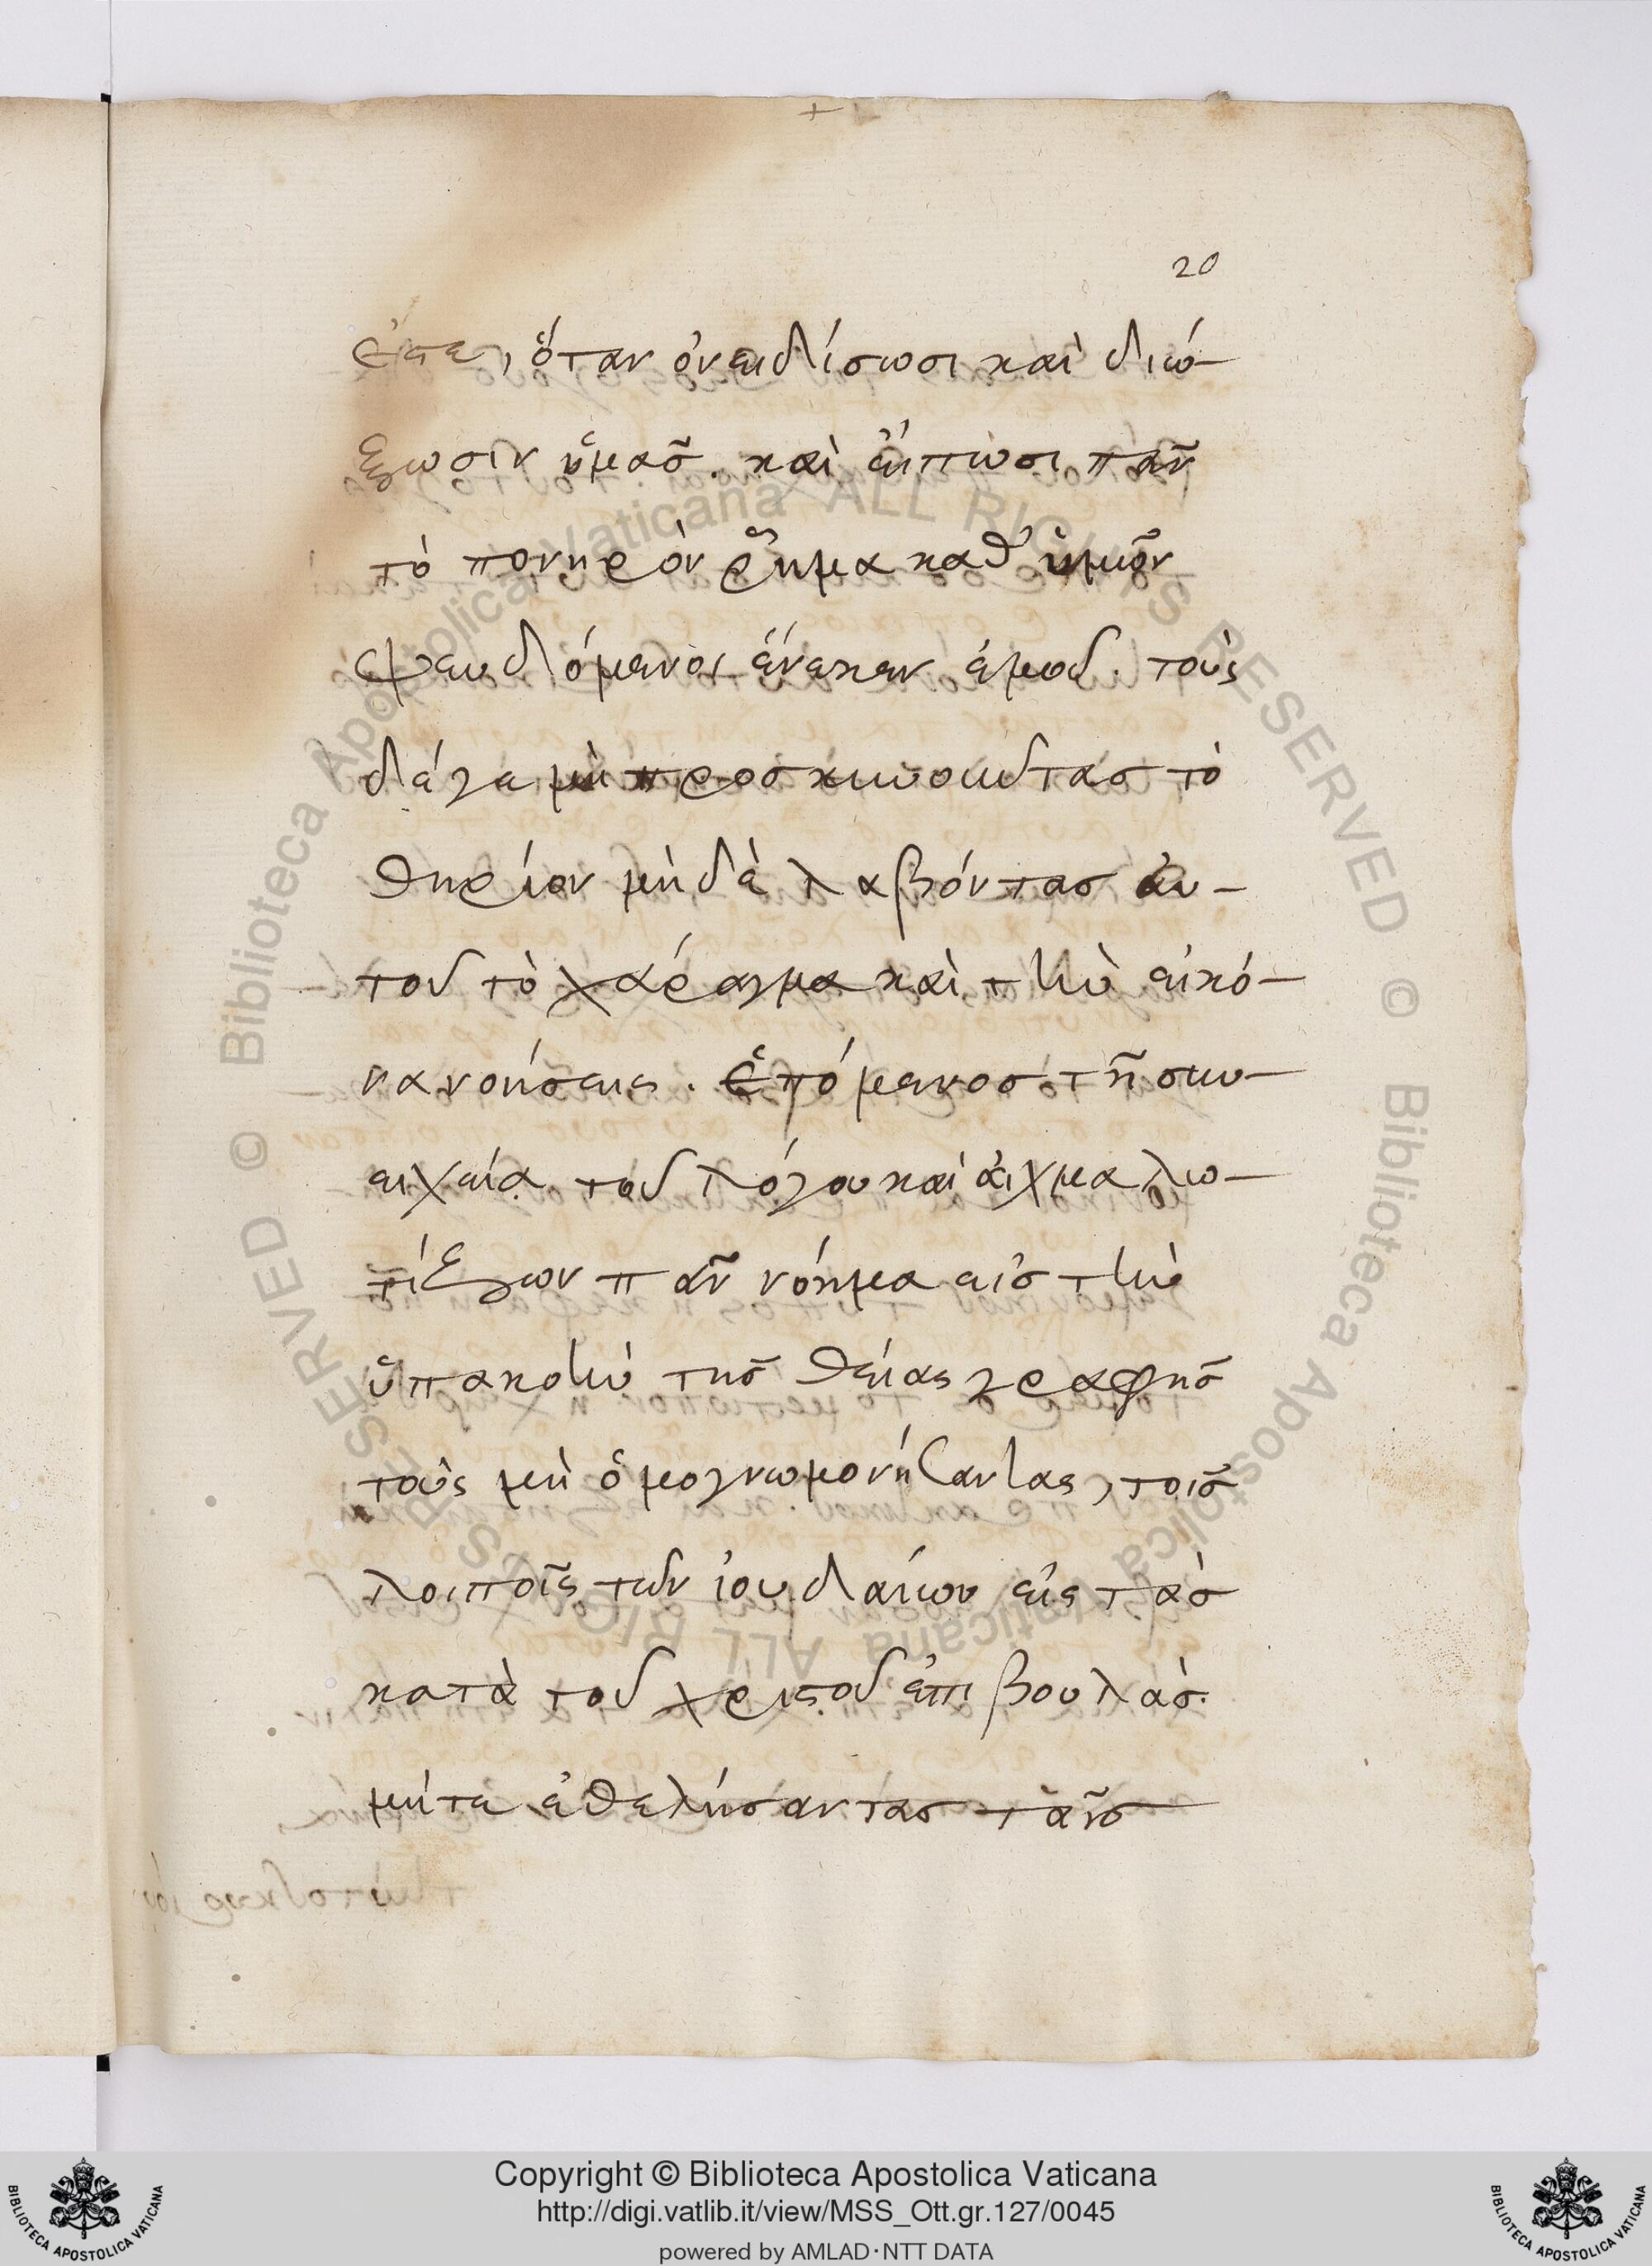 20
ἐστε, ὅταν ὀνειδίσωσι καὶ διώ-
ξωσιν ὑμᾶσ. καὶ εἴπωσι πᾶν
τὸ πονηρὸν ῥῆμα καθ' ὑμῶν
ψευδόμενοι ἕνεκεν ἐμοῦ. τοὺς
δέ γε μὴ προσκυνοῦντασ τὸ
θηρίον μὴδὲ λαβόντασ αὐ-
τοῦ τὸ χάραγμα καὶ τὴν εἰκό-
να νοήσεις. ἑπόμενοσ τῆ συν-
ειχεία τοῦ λόγου καὶ αἰχμαλω-
τίζων πᾶν νόημα εἰσ τὴν
ὑπακοὴν τῆσ θείας γραφῆσ
τοὺς μὴ ὁμογνωμονήσαντας, τοῖσ
λοιποῖς τῶν ἰουδαίων εἰς τὰσ
κατὰ τοῦ χριστοῦ ἐπιβουλάσ.
μήτε ἐθελήσαντασ ταῖσ
Copyright © Biblioteca Apostolica Vaticana
http://digi.vatlib.it/view/MSS_Ott.gr.127/0045
powered by AMLAD·NTT DATA
BIBLIOTECA APOSTOLICA VATICANA
BIBLIOTECA APOSTOLICA VATICANA
© Biblioteca Apostolica Vaticana ALL RIGHTS RESERVED
© Biblioteca Apostolica Vaticana ALL RIGHTS RESERVED